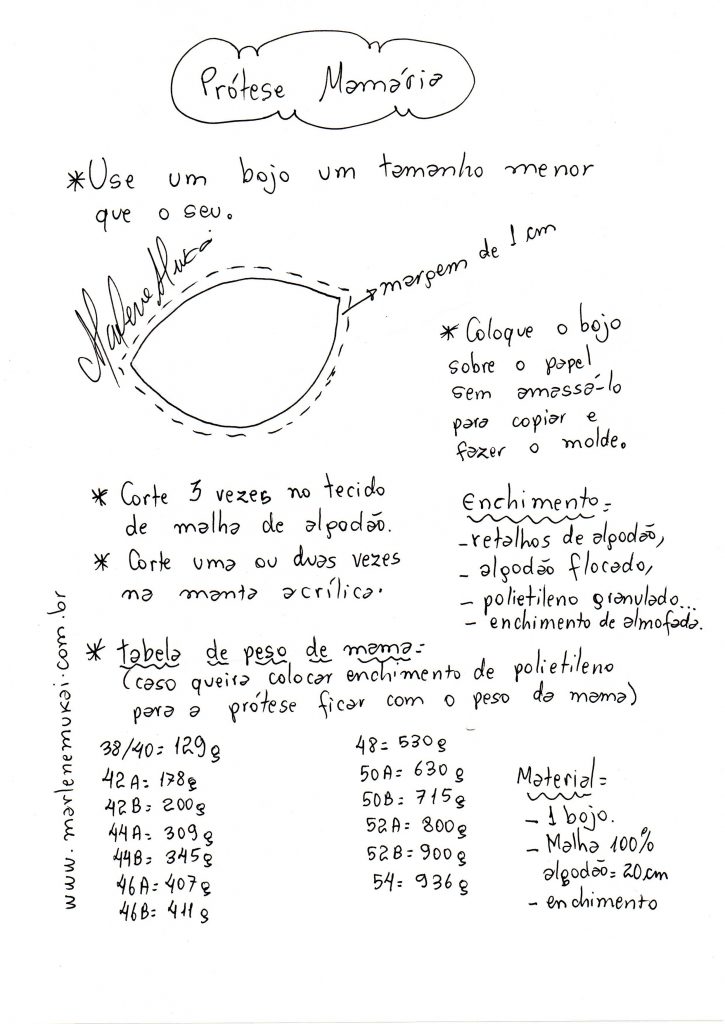 Prótese Mamária
*Use um bojo um tamanho menor
que o seu.
Marlene Mukai
margem de 1 cm
* Coloque o bojo
sobre o papel
sem amassá-lo
para copiar e
fazer o molde.
* Corte 3 vezes no tecido
de malha de algodão.
* Corte uma ou duas vezes
na manta acrílica.
Enchimento=
-retalhos de algodão,
- algodão flocado,
- polietileno granulado...
- enchimento de almofada.
* tabela de peso de mama=
(caso queira colocar enchimento de polietileno
para a prótese ficar com o peso da mama)
38/40= 129g
42A= 178g
42B= 200g
44A= 309g
44B= 345g
46A= 407g
46B= 411g
48= 530g
50A= 630g
50B= 715g
52A= 800g
52B= 900g
54= 936g
Material=
- 1 bojo.
- Malha 100%
algodão= 20cm
- enchimento
www.marlenemukai.com.br